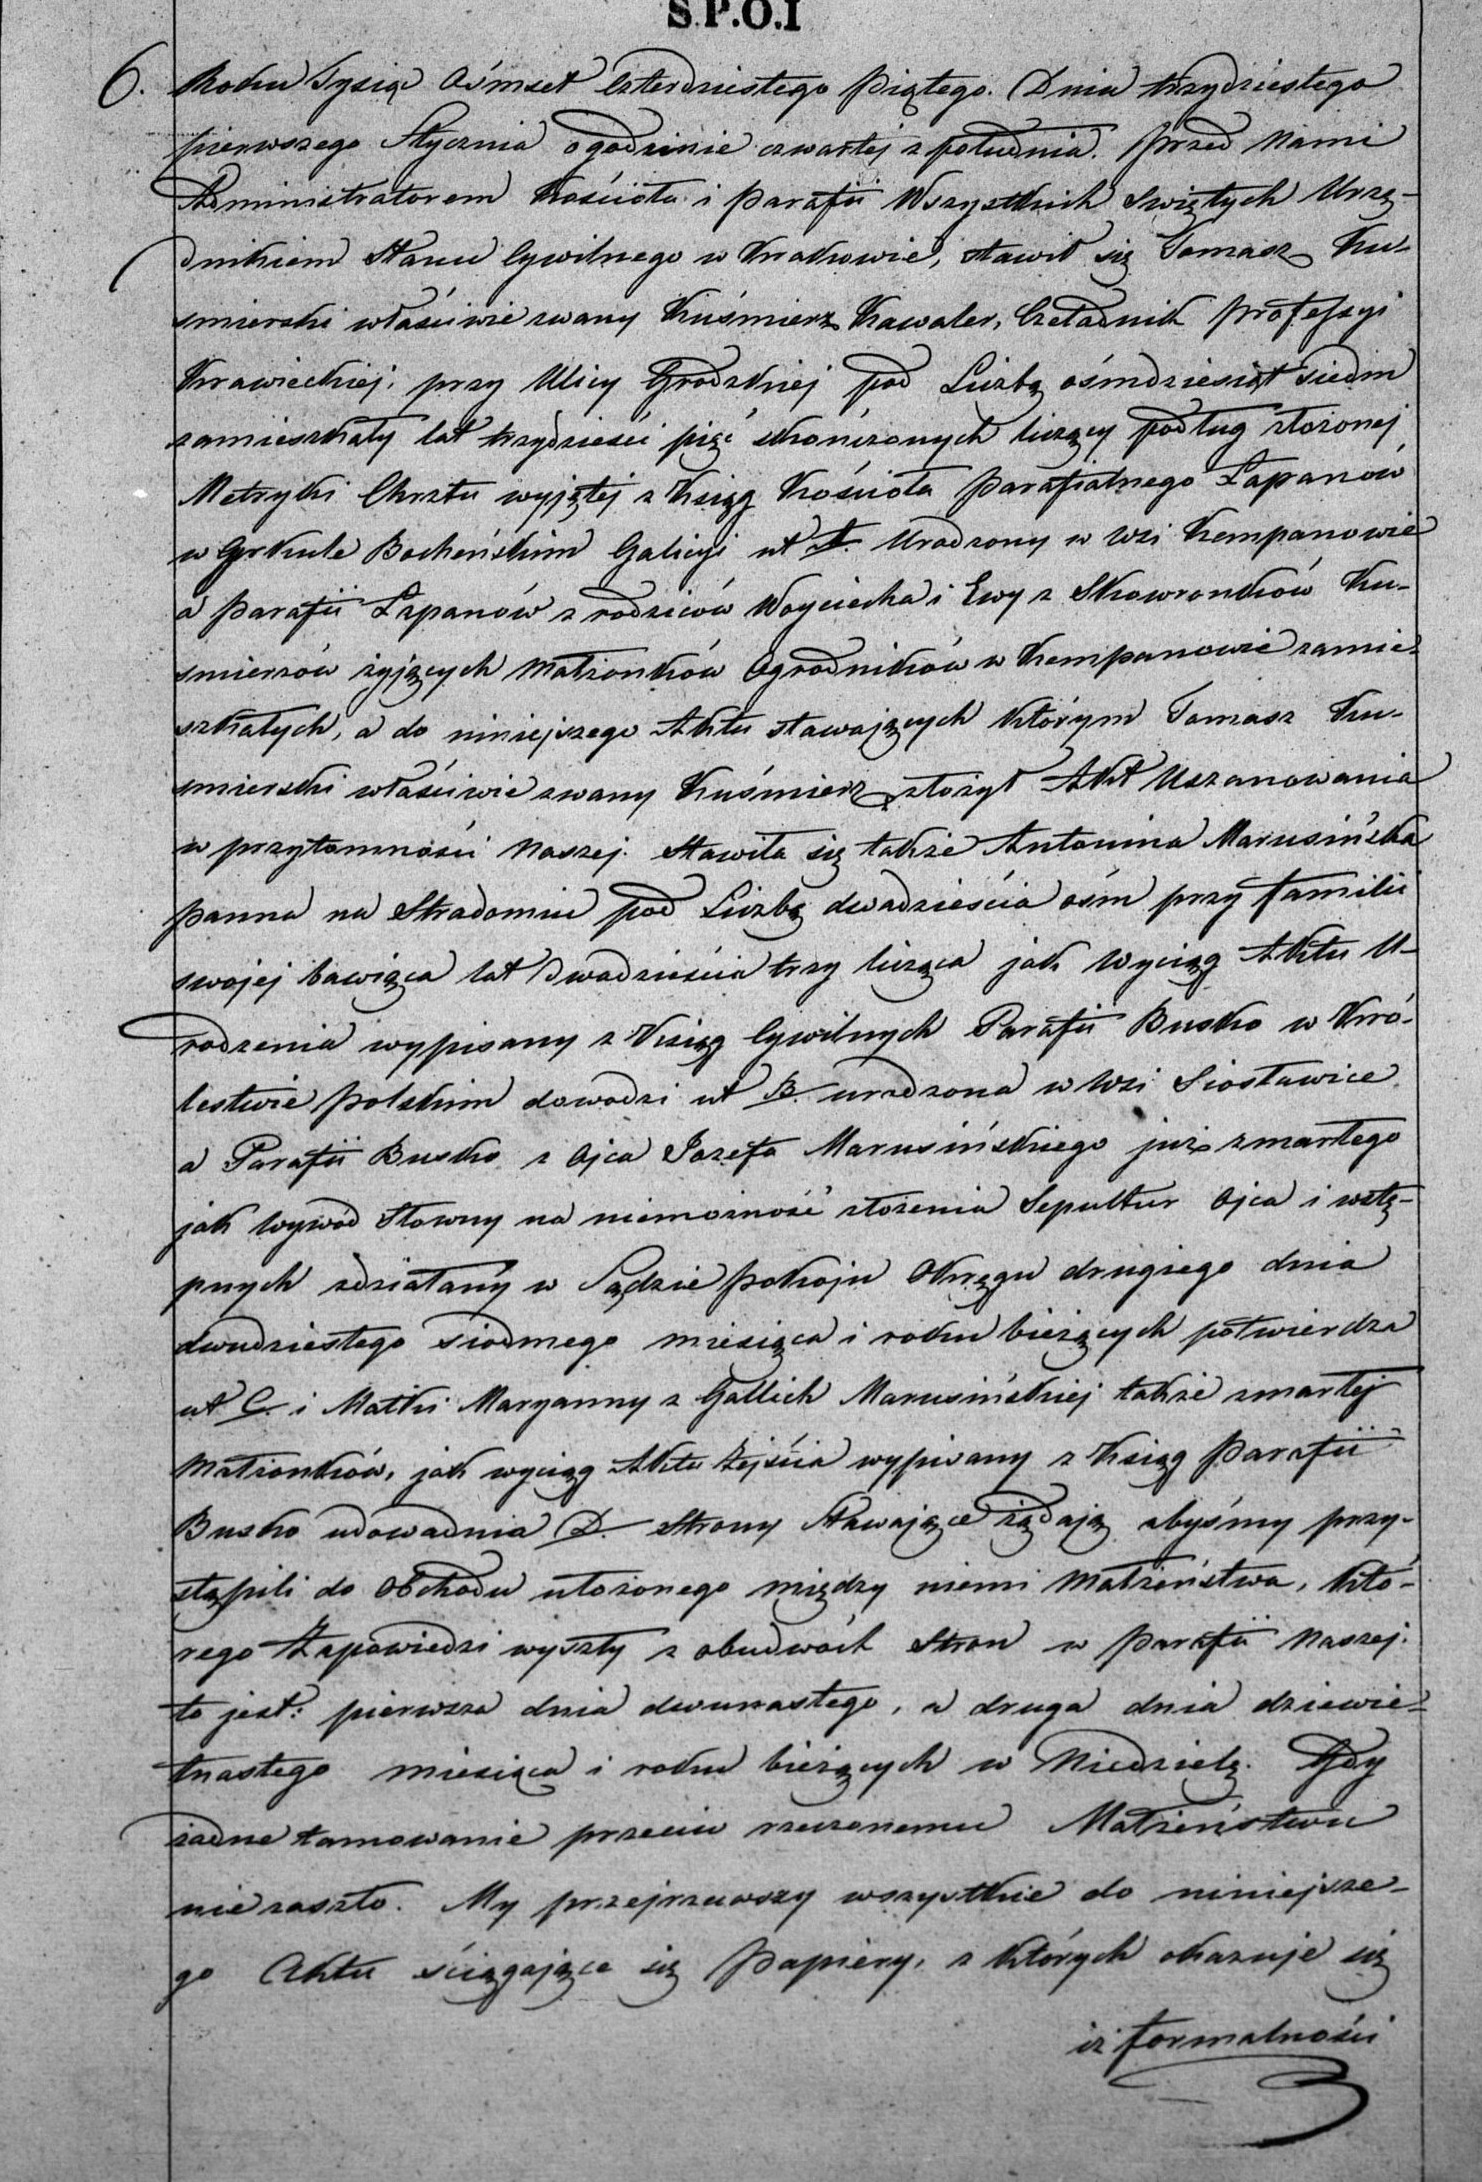 S.P.O.I
6. Roku Tysiąc Ośmset Czterdziestego Piątego. Dnia trzydziestego
pierwszego Stycznia o godzinie czwartej z południa. przed Nami
Administratorem Kościoła i Parafii Wszystkich Swiętych Urzę-
dnikiem Stanu Cywilnego w Krakowie, stawił się Tomasz Ku-
smierski właściwie zwany Kuśmierz Kawaler, Czeladnik Professyi
Krawieckiej, przy Ulicy Grodzkiej pod Liczbą ośmdziesiąt siedm
zamieszkały lat trzydzieści pięć skończonych liczący podług złożonej
Metryki Chrztu wyjętej z Ksiąg Kościoła Parafialnego Łapanów
w Cyrkule Bocheńskim Galicyi ut A. Urodzony w Wsi Kempanowie
a Parafii Łapanów z rodziców Woyciecha i Ewy z Skowronków Ku-
smierzów żyjących Małżonków Ogrodników w Kempanowie zamie-
szkałych, a do niniejszego Aktu stawających którym Tomasz Ku-
smierski właściwie zwany Kuśmierz złożył Akt Uszanowania
w przytomności Naszej. Stawiła się także Antonina Marusińska
Panna na Stradomiu pod Liczbą dwadzieścia ośm przy familii
swojej bawiąca lat Dwadzieścia trzy licząca jak Wyciąg Aktu U-
rodzenia wypisany z Ksiąg Cywilnych Parafii Busko w Kró-
lestwie Polskim dowodzi ut B. urodzona w Wsi Siosławice
a Parafii Busko z Ojca Jozefa Marusińskiego już zmarłego
jak Wywód Słowny na niemożność złożenia Sepultur Ojca i wstę-
pnych zdziałany w Sądzie Pokoju Okręgu drugiego dnia
dwudziestego siódmego miesiąca i roku bieżących potwierdza
ut C. i Matki Maryanny z Gallich Marusińskiej także zmarłej
Małżonków, jak wyciąg Aktu Zejścia wypisany z Ksiąg Parafii
Busko udowadnia D. Strony Stawające żądają abyśmy przy-
stąpili do Obchodu ułożonego między niemi Małżeństwa, któ-
rego Zapowiedzi wyszły z obudwóch Stron w Parafii Naszej.
to jest: pierwsza dnia dwunastego, a druga dnia dziewię-
tnastego miesiąca i roku bieżących w Niedzielę. Gdy
żadne tamowanie przeciw rzeczonemu Małżeństwu
nie zaszło. My przejrzawszy wszystkie do niniejsze-
go Aktu ściągające się Papiery, z których okazuje się
iż formalności